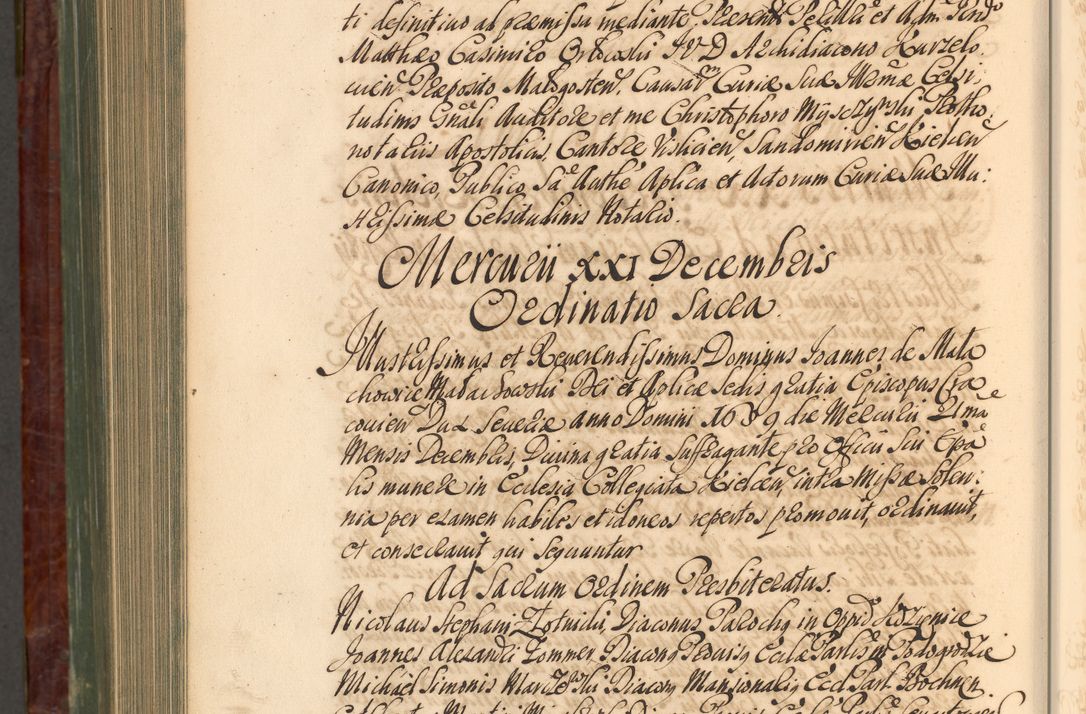 ti definitivo al præmissa mediante. Præsent Perillri et Adm Rndo
Matthæo Casimiro Ordowski IVD Archidiacono Kurzelo
cien Præposito Malogosten, Causar Curiæ Suæ Illrmæ Celsi
tudinis Gnali Auditore et me Christophoro Mysczynski Protho
notariis Apostolicis, Cantore Visliciens, Sandomirien Kielcen
Canonico, Publico Sa Authe Aplica et Actorum Curiæ Suæ Illu:
strissimæ Celsitudinis Notario.
Mercurii XXI Decembris
Ordinatio Sacra.
Illustrissimus et Reverendissimus Dominus Joannes de Mała
chowice Małachowski Dei et Aplicæ Sedis gratia Episcopus Cra
covien Dux Severiæ anno Domini 1689 die Mercurii 21ma
Mensis Decembris, Divina gratia Suffragante pro Officii Sui Epa
lis munere in Ecclesia Collegiata Kielcen, intra Missæ Solen:
nia per examen habiles et idoneos repertos promovit, ordinavit,
et consecravit qui sequuntur
Ad Sacrum Ordinem Presbiteratus.
Nicolaus Stephani Złotnicki, Diaconus Parochs in Oppid Kozynice
Joannes Alexandri Tommer Diacong Peduisg Eccla Parlis in Podogrodzie
Michael Simonis Marczewski Diacong Mansionalig Eccl Parl Bochnen.